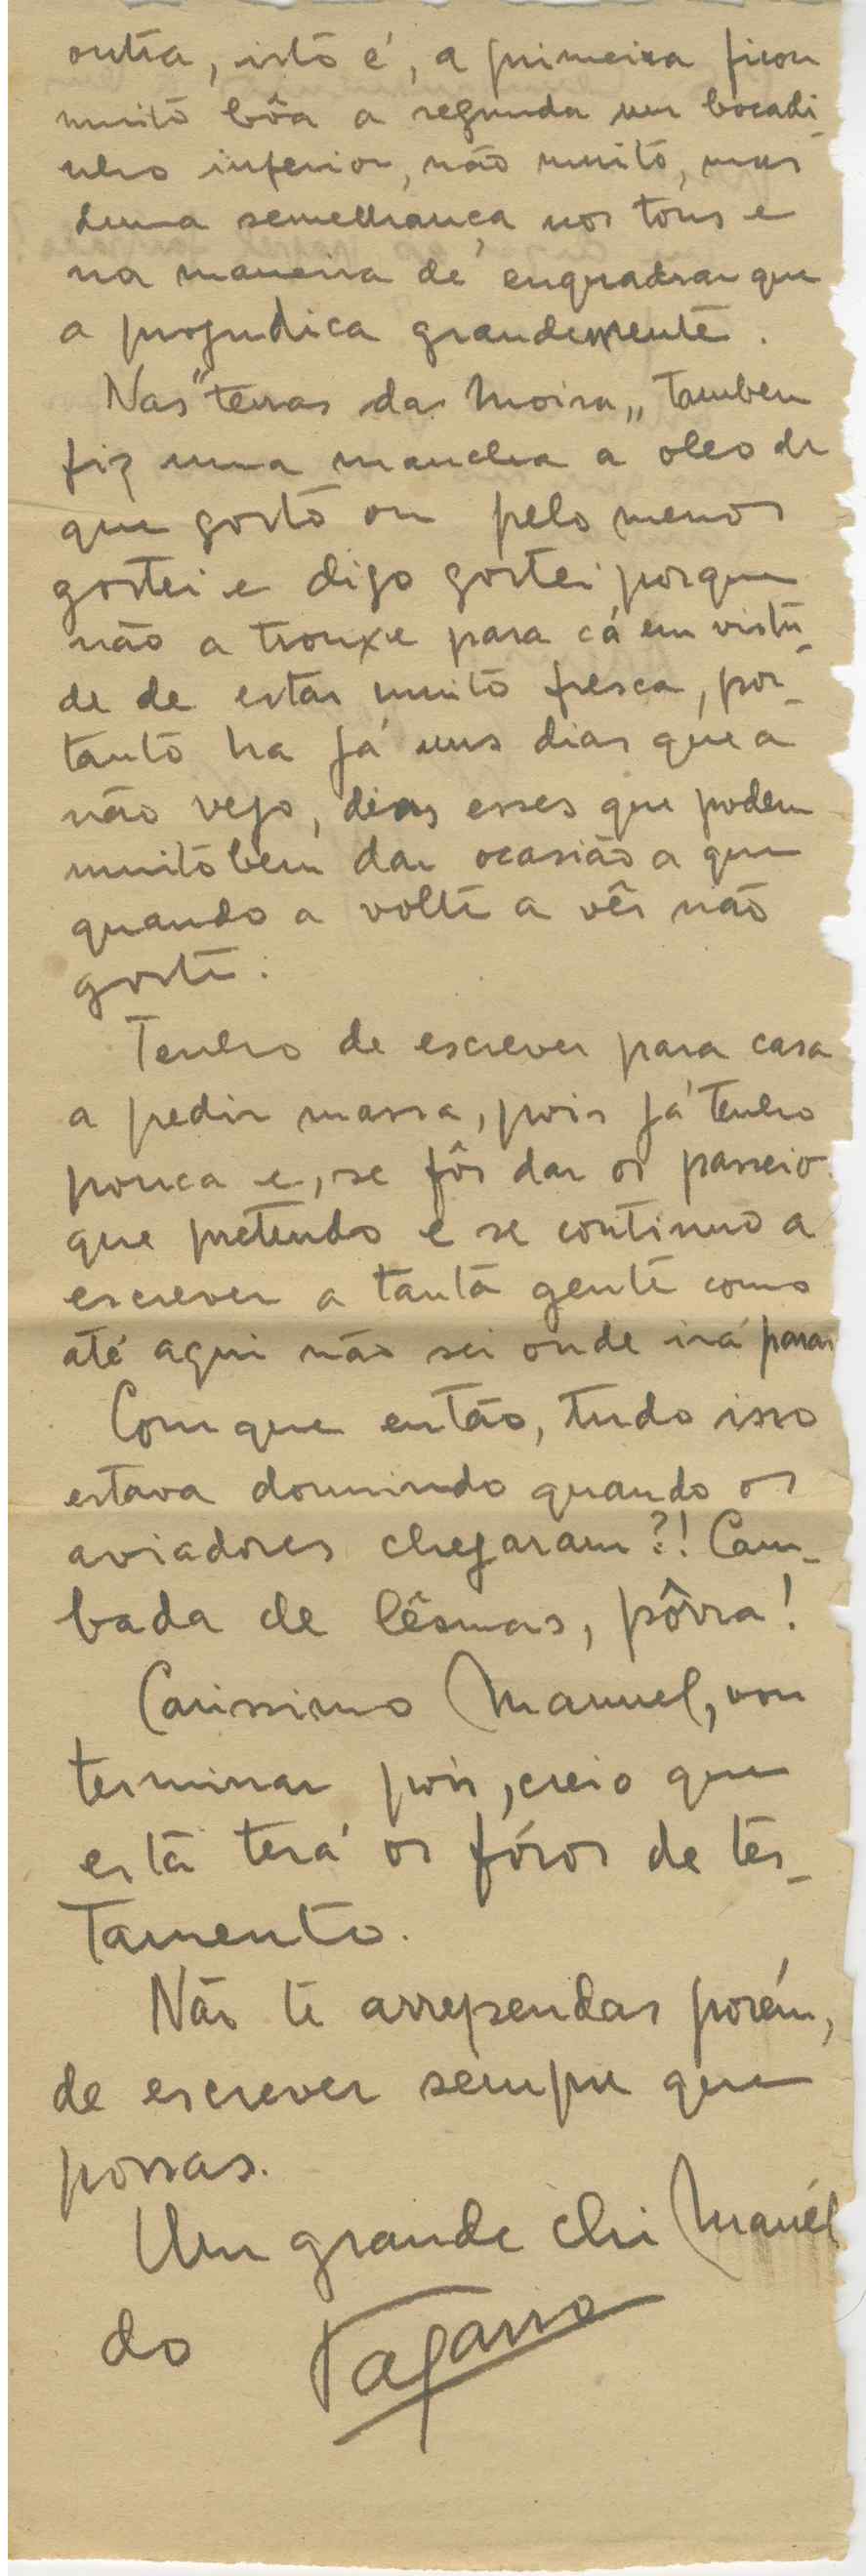 outra, isto é, a primeira ficou
muito bôa a segunda um bocadi-
nho inferior, não muito, mas
duma semelhança nos tons e
na maneira de enquadrar que
a prejudica grandemente.
Nas "terras da Moira„ tambem
fiz uma mancha a oleo de
que gosto ou pelo menos
gostei e digo gostei porque
não a trouxe para cá em virtu-
de de estar muito fresca, por-
tanto ha já uns dias que a
não vejo, dias esses que podem
muito bem dar ocasião a que
quando a volte a vêr não
goste.
Tenho de escrever para casa
a pedir massa, pois já tenho
pouca e, se fôr dar os passeios
que pretendo e se continuo a
escrever a tanta gente como
até aqui não sei onde irá parar
Com que então, tudo isso
estava dormindo quando os
aviadores chegaram?! Cam-
bada de lêsmas, pôrra!
Carissimo Manuel, vou
terminar pois, creio que
esta terá os fóros de tes-
tamento.
Não te arrependas porém,
de escrever sempre que
possas.
Um grande chi Manuél
do